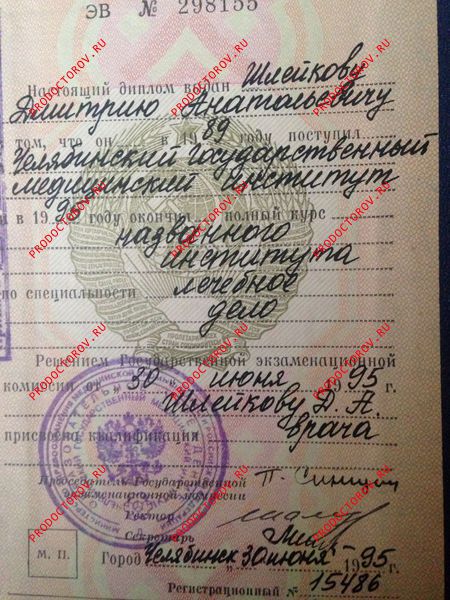 ЭВ № 298155
Настоящий диплом выдан Шлейкову
Дмитрию Анатольевичу
том, что он в 1989 году поступил
Челябинский Государственный
медицинский институт
и в 1995 году окончил полный курс
названного
института
по специальности лечебное
дело
Решением Государственной экзаменационной
комиссии от 30 июня 1995 г.
Шлейкову Д. А.
присвоена квалификация врача
Председатель Государственной
экзаменационной комиссии
Ректор
Секретарь
М. П. Город Челябинск 30 июня 1995 г.
Регистрационный № 15486
PRODOCTOROV.RU